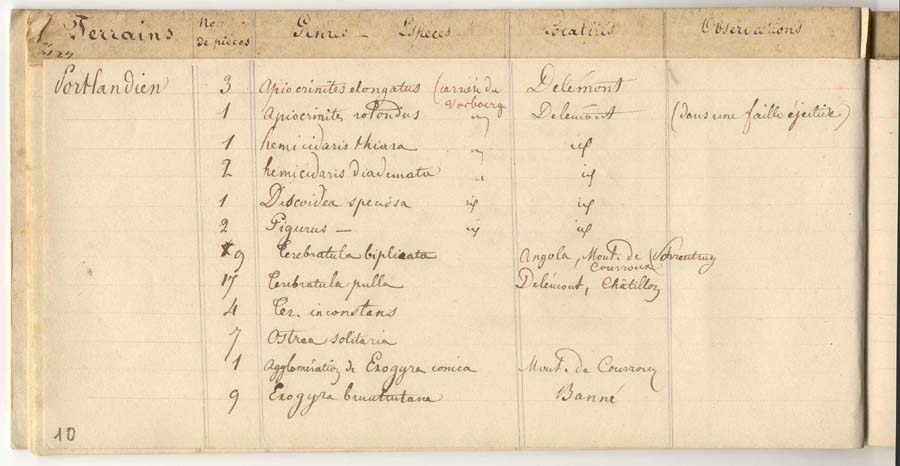 Terrains No. de pièces Genres — Espèces Localités Observations
Portlandien 3 Apiocrinites elongatus (carrière du Vorbourg Delémont
1 Apiocrinites rotondus id Delémont (dans une faille éjective)
1 hemicidaris thiara id id
2 hemicidaris diademata id id
1 Discoidea speciosa id id
2 Pigurus — id id
9 Terebratula biplicata Angola, Mont. de Courroux Porrentruy
17 Terebratula pulla Delémont, Châtillon
4 Ter. inconstans
7 Ostrea solitaria
1 Agglomération de Exogyra conica Mont. de Courroux
9 Exogyra bruntrutana Banné
10